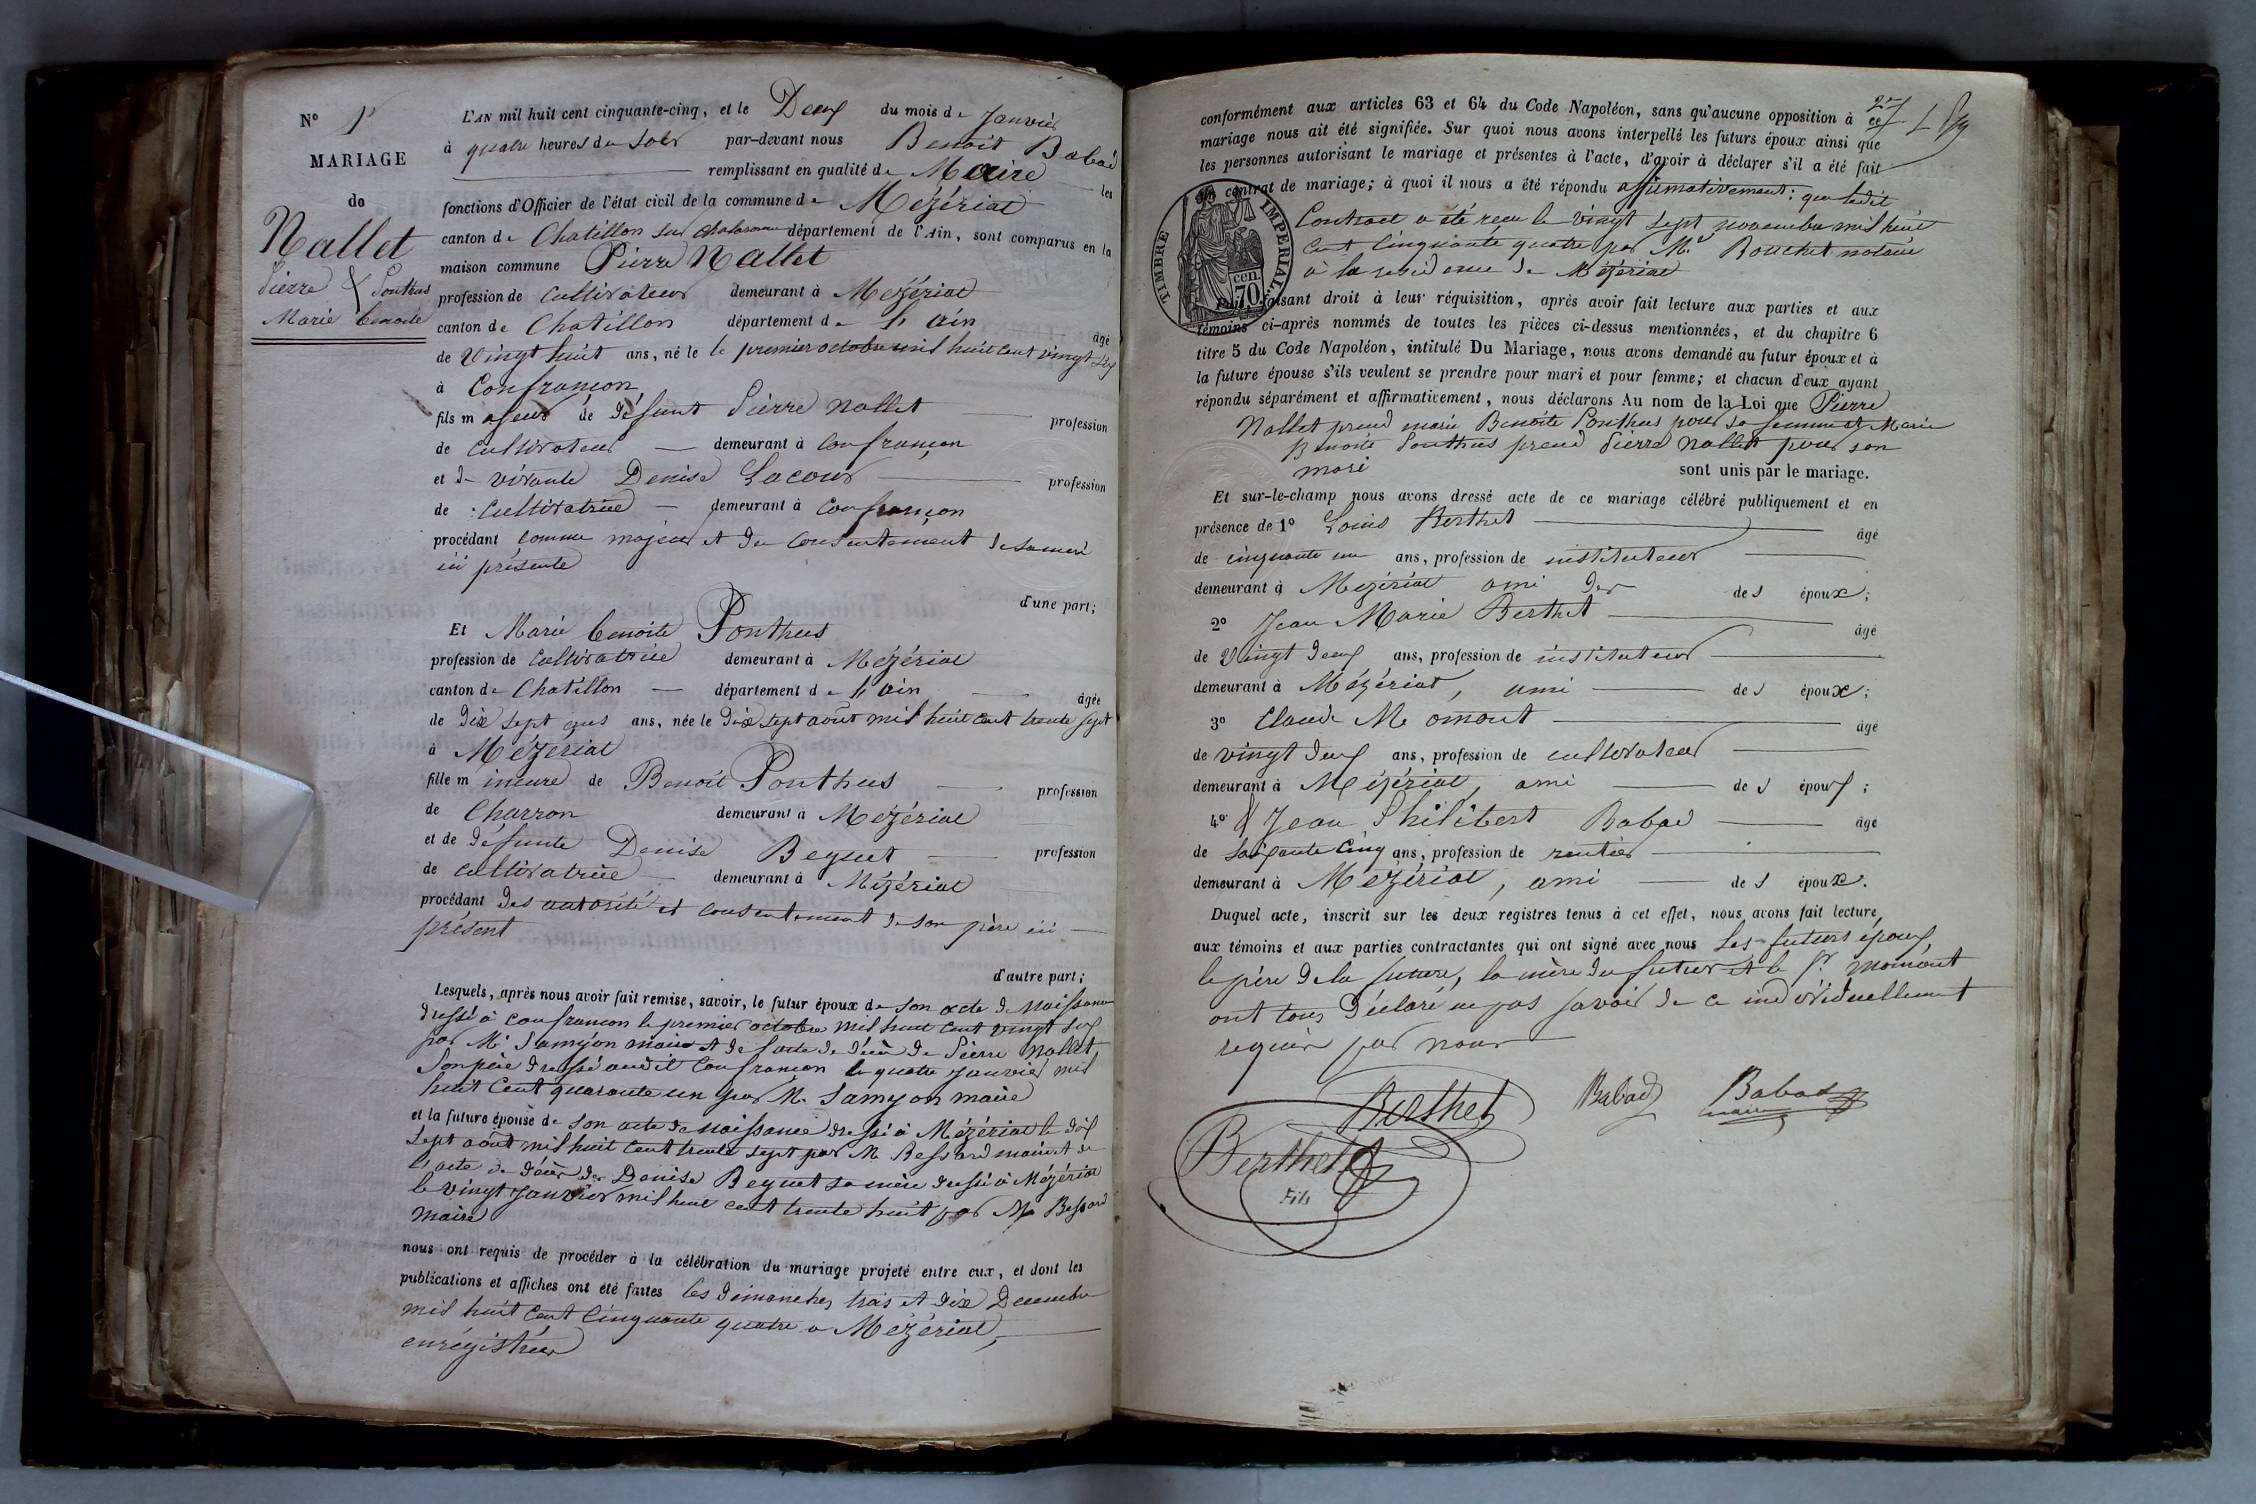 N° 1
MARIAGE
de
Nallet
Pierre & Ponthus
Marie Benoite
L'AN mil huit cent cinquante-cinq, et le Deux du mois de Janvier
à quatre heures du soir par-devant nous Benoit Babad
remplissant en qualité de Maire les
fonctions d'Officier de l'état civil de la commune de Mézériat
canton de Chatillon sur chalaronne département de l'Ain, sont comparus en la
maison commune Pierre Nallet
profession de cultivateur demeurant à Mézériat
canton de Chatillon département de l'ain âgé
de vingt huit ans, né le le premier octobre mil huit cent vingt six
à Confrançon
fils majeur de défunt Pierre Nallet profession
de cultivateur demeurant à Confrançon
et de vivante Denise Lacour profession
de : Cultivatrice demeurant à Confrançon
procédant comme majeur et du consentement de sa mère
ici présente
d'une part;
Et Marie Benoite Ponthus
profession de Cultivatrice demeurant à Mézériat
canton de Chatillon département de l'ain âgée
de dix sept ans ans, née le dix sept août mil huit cent trente sept
à Mézériat
fille mineure de Benoit Ponthus profession
de Charron demeurant à Mézériat
et de défunte Denise Beguet profession
de cultivatrice demeurant à Mézériat
procédant des autorité et consentement de son père ici
présent
d'autre part;
Lesquels, après nous avoir fait remise, savoir, le futur époux de son acte de Naissance
dressé à confrançon le premier octobre mil huit cent vingt six
par Mr Samyon maire et de l'acte de décès de Pierre Nallet
son père dressé audit Confrançon le quatre janvier mil
huit cent quarante un par M. Samyon maire
et la future épouse de son acte de naissance dressé à Mézériat le dix
sept août mil huit cent trente sept par M Bessard maire et de
l'acte de décès de Denise Beguet sa mère dressé à Mézériat
le vingt janvier mil huit cent trente huit par M. Bessard
maire
nous ont requis de procéder à la célébration du mariage projeté entre eux, et dont les
publications et affiches ont été faites les dimanches trois et dix Decembre
mil huit cent cinquante quatre a Mézériat,
enrégistrées
conformément aux articles 63 et 64 du Code Napoléon, sans qu'aucune opposition à ce
mariage nous ait été signifiée. Sur quoi nous avons interpellé les futurs époux ainsi que
les personnes autorisant le mariage et présentes à l'acte, d'avoir à déclarer s'il a été fait
un contrat de mariage; à quoi il nous a été répondu affirmativement: que ledit
Contract a été reçu le vingt sept novembre mil huit
cent cinquante quatre par Mr Bouchet notaire
à la residence de Mézériat
TIMBRE IMPERIAL
70 cen.
Puis, faisant droit à leur réquisition, après avoir fait lecture aux parties et aux
témoins ci-après nommés de toutes les pièces ci-dessus mentionnées, et du chapitre 6
titre 5 du Code Napoléon, intitulé Du Mariage, nous avons demandé au futur époux et à
la future épouse s'ils veulent se prendre pour mari et pour femme; et chacun d'eux ayant
répondu séparément et affirmativement, nous déclarons Au nom de la Loi que Pierre
Nallet prend marie Benoite Ponthus pour sa femme et Marie
Benoite Ponthus prend Pierre Nallet pour son
mari sont unis par le mariage.
Et sur-le-champ nous avons dressé acte de ce mariage célébré publiquement et en
présence de 1° Louis Berthet âgé
de cinquante un ans, profession de instituteur
demeurant à Mézériat ami des des époux;
2° Jean Marie Berthet âgé
de vingt deux ans, profession de instituteur
demeurant à Mézériat, ami des époux;
3° Claude Momont âgé
de vingt deux ans, profession de cultivateur
demeurant à Mézériat, ami des époux;
4° & Jean Philibert Babad âgé
de soixante cinq ans, profession de rentier
demeurant à Mézériat, ami des époux.
Duquel acte, inscrit sur les deux registres tenus à cet effet, nous avons fait lecture
aux témoins et aux parties contractantes qui ont signé avec nous Les futurs époux,
le père de la future, la mère du futur et le Sr Momont
ont tous déclaré ne pas savoir de ce individuellement
requis par nous
Berthet Babad Babad
maire
Berthet
Fils